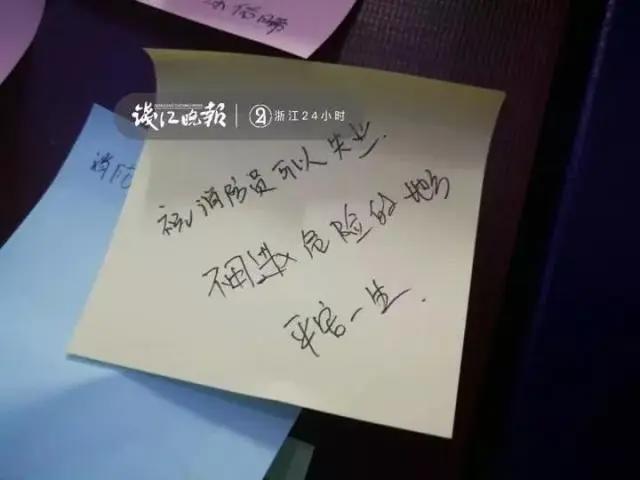 钱江晚报 浙江24小时
祝消防员可以失业.
不用进危险的地方
平安一生.
消防